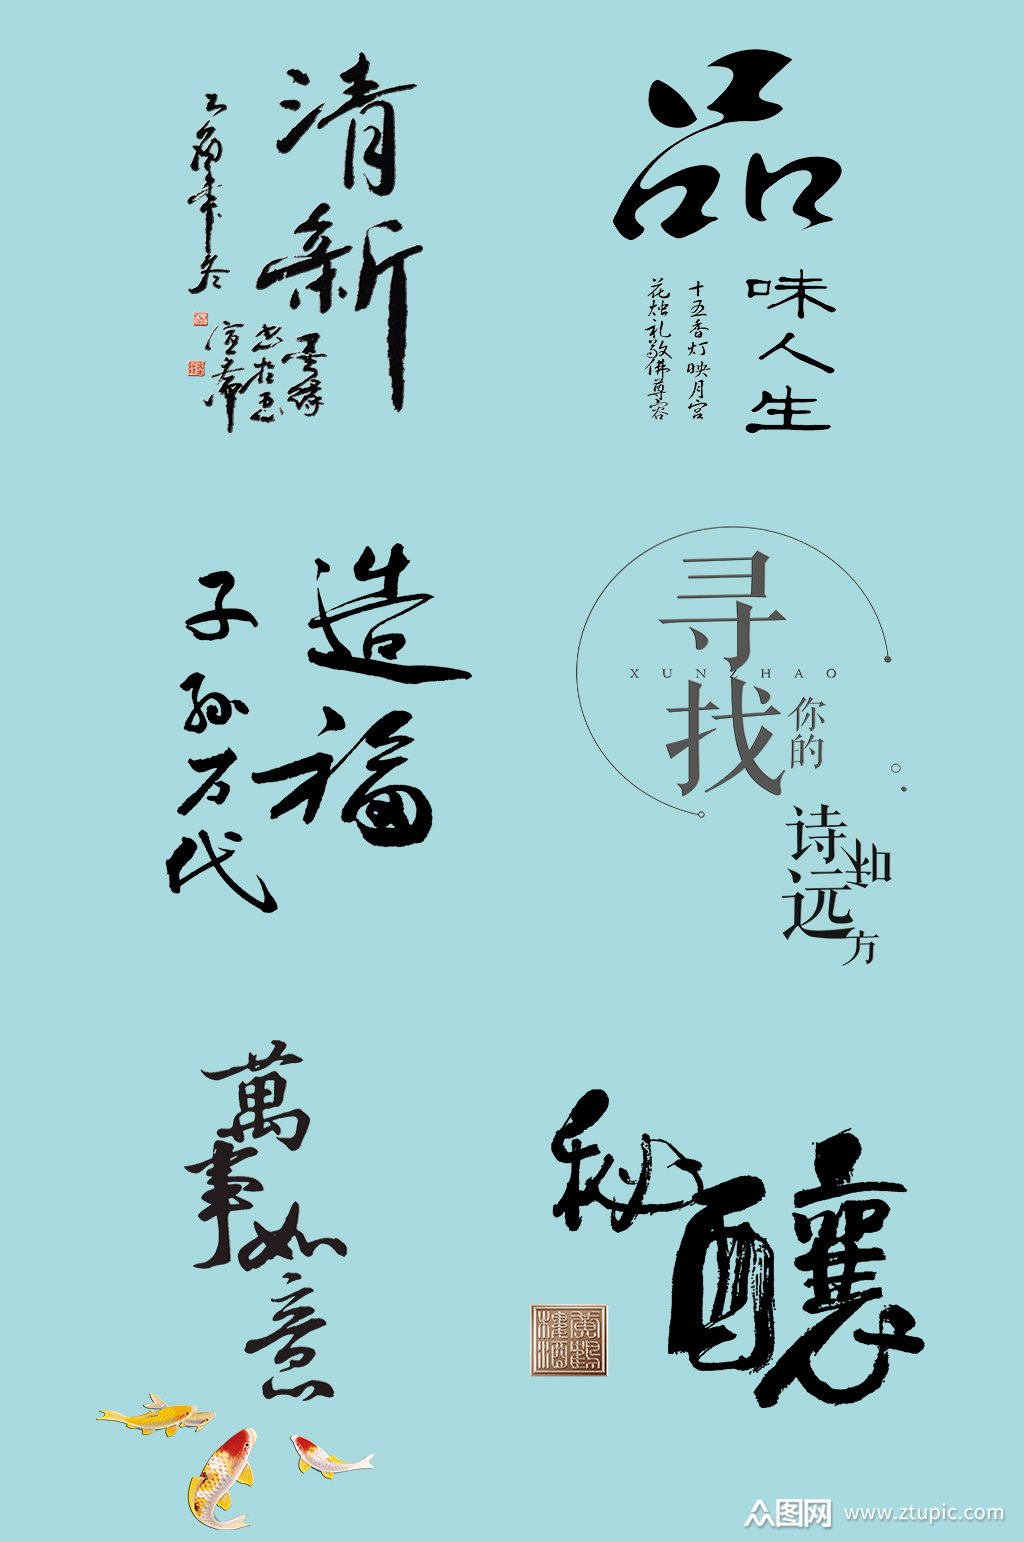 清新
品
味人生
十五香灯映月宫
花烛礼敬佛尊容
造福
子孙万代
寻找
XUNZHAO
你的
诗和
远方
萬事如意
秘釀
众图网 www.ztupic.com